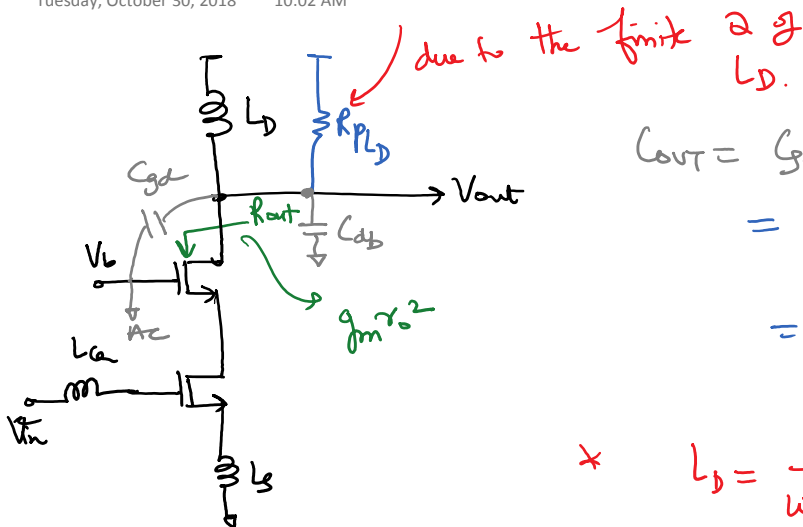 Tuesday, October 30, 2018 10:02 AM
due to the finite Q of
L_D.
L_D
R_PL_D
C_gd
C_OUT = C_g
V_out
R_out
C_db
=
V_b
g_m r_o²
AC
=
L_G
V_in
L_S
* L_D =